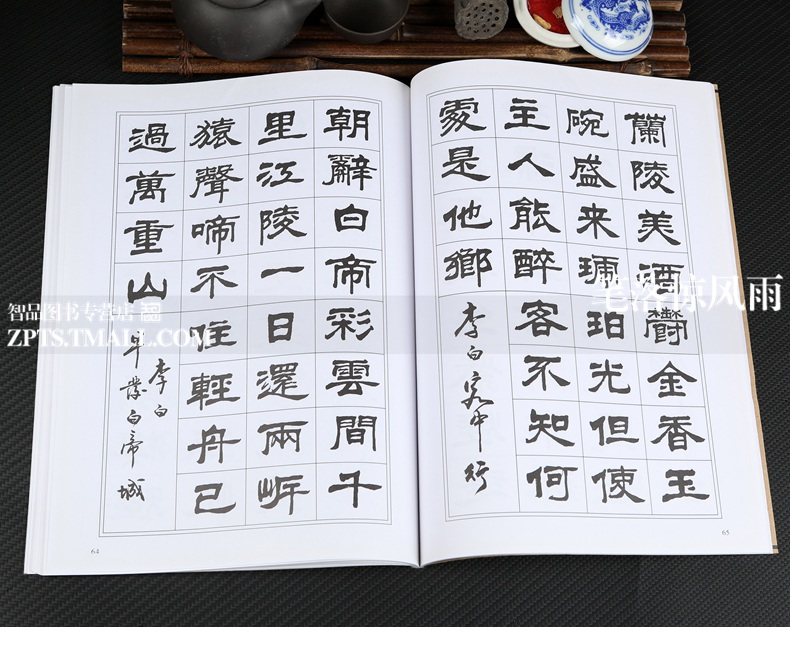 蘭陵美酒鬱金香玉
碗盛来琥珀光但使
主人能醉客不知何
處是他鄉
李白客中行
65
朝辭白帝彩雲間千
里江陵一日還兩岸
猿聲啼不住輕舟已
過萬重山
李白
早發白帝城
64
智品图书专营店
ZPTS.TMALL.COM
笔落惊风雨